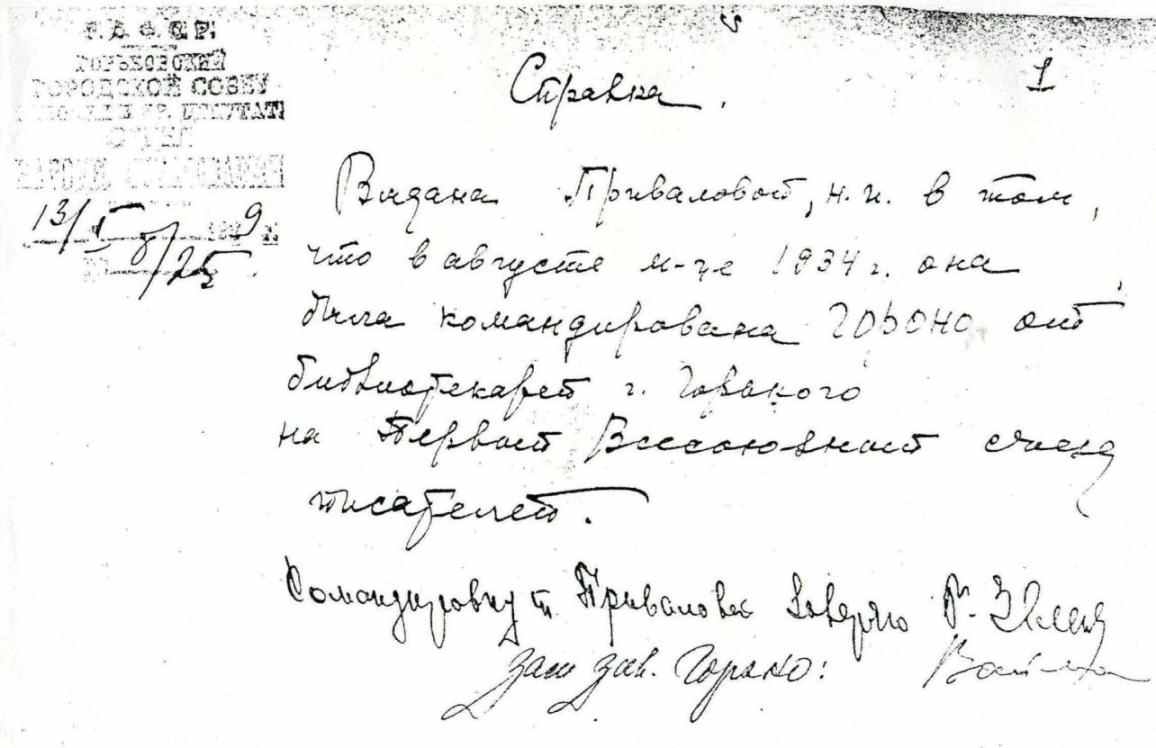 Р. С. Ф. С. Р.
ГОРЬКОВСКИЙ
ГОРОДСКОЙ СОВЕТ
ДЕПУТАТ
ОТДЕЛ
НАРОДН. ОБРАЗОВАНИЯ
13/I 1949 г.
8/25
1
Справка.
Выдана Приваловой, Н. И. в том,
что в августе м-це 1934 г. она
была командирована ГОРОНО от
библиотекарей г. Горького
на Первый Всесоюзный съезд
писателей.
Командировку т. Приваловой Заверяю
Зам зав. Гороно: